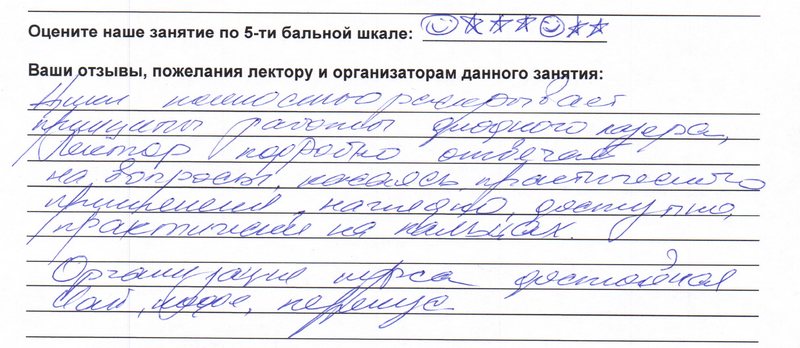 Оцените наше занятие по 5-ти бальной шкале:
Ваши отзывы, пожелания лектору и организаторам данного занятия:
полностью раскрывает
принципы работы диодного лазера,
Лектор подробно отвечал
на вопросы, касаясь практического
применения, наглядно, доступно,
практически на пальцах.
Организация курса достойная
Чай, кофе,